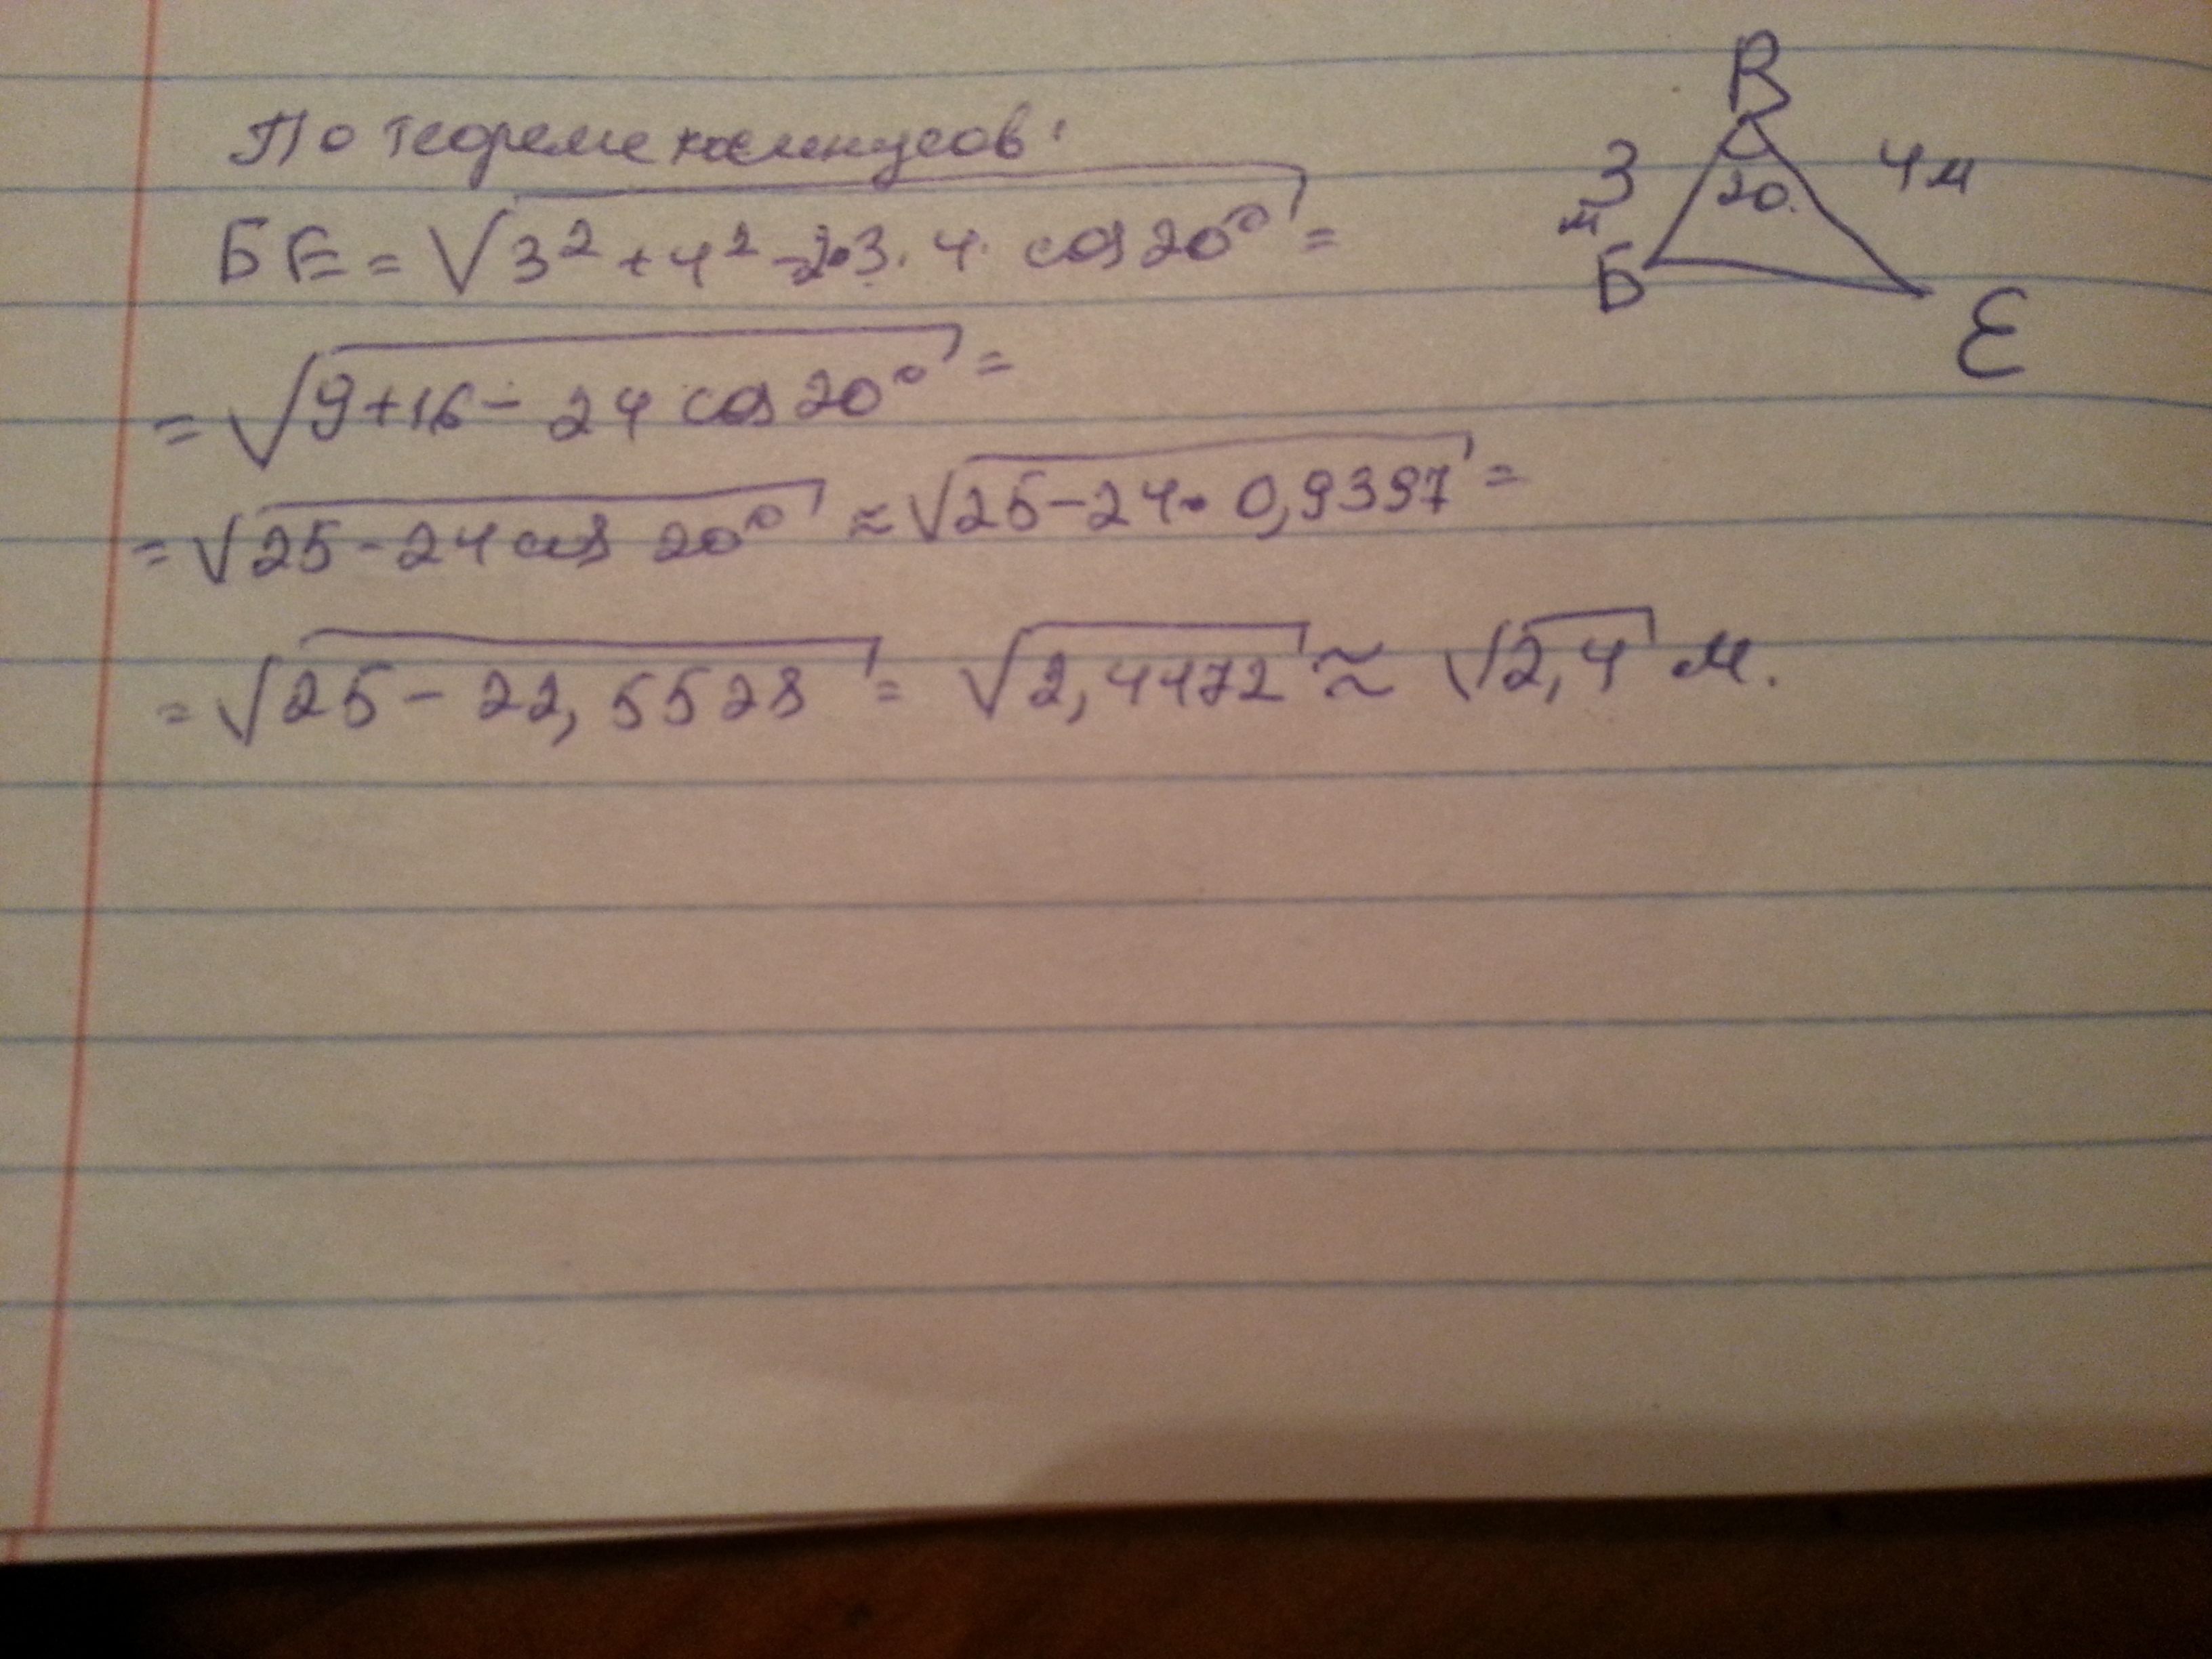 По теореме косинусов:
БЕ = √3² + 4² - 2·3·4· cos 20° =
= √9 + 16 - 24 cos 20° =
= √25 - 24 cos 20° ≈ √25 - 24 · 0,9397 =
= √25 - 22,5528 = √2,4472 ≈ √2,4 м.
В
3 м
20
4 м
Б
Е